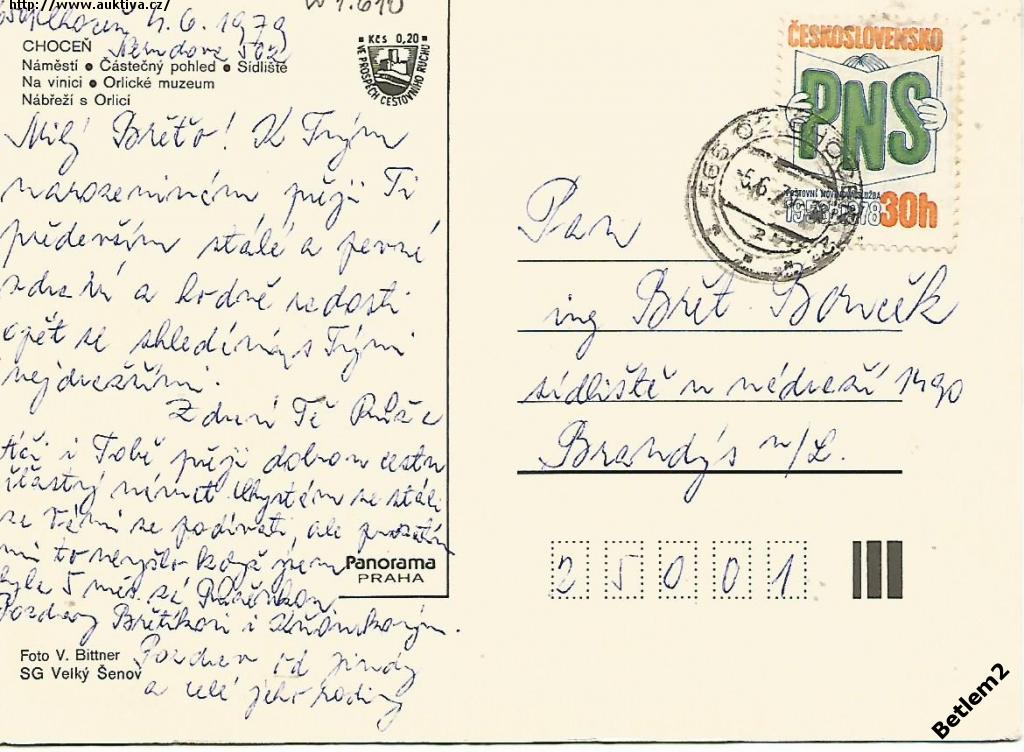 http://www.auktiva.cz/
W 1.610
Choceň 4.6.1979
CHOCEŇ
Nerudova 702
Náměstí • Částečný pohled • Sídliště
Na vinici • Orlické muzeum
Nábřeží s Orlicí
Kčs 0,20
VE PROSPĚCH CESTOVNÍHO RUCHU
ČESKOSLOVENSKO
PNS
POŠTOVNÍ NOVINOVÁ SLUŽBA
1953-1978 30h
565 01 CHOCEŇ
Milý Břéťo! K Tvým
narozeninám přeji Ti
především stálé a pevné
zdraví a hodně radosti
opět se shledání s Tvými
nejdražšími.
Zdraví Tě Růža
i Tobě přeji dobrou cestu
šťastný návrat. Chystám se stále
se Vámi se podívati, ale prozatím
mi to nevyšlo když jsem
byla 5 měs. za Růženkou
Pozdravy Břetíkovi i
Pozdrav od Jindy
a celé jeho rodiny
Pan
ing Břet. Borůvek
sídliště u nádraží 1490
Brandýs n/L.
25001
Panorama
PRAHA
Foto V. Bittner
SG Velký Šenov
Betlem2